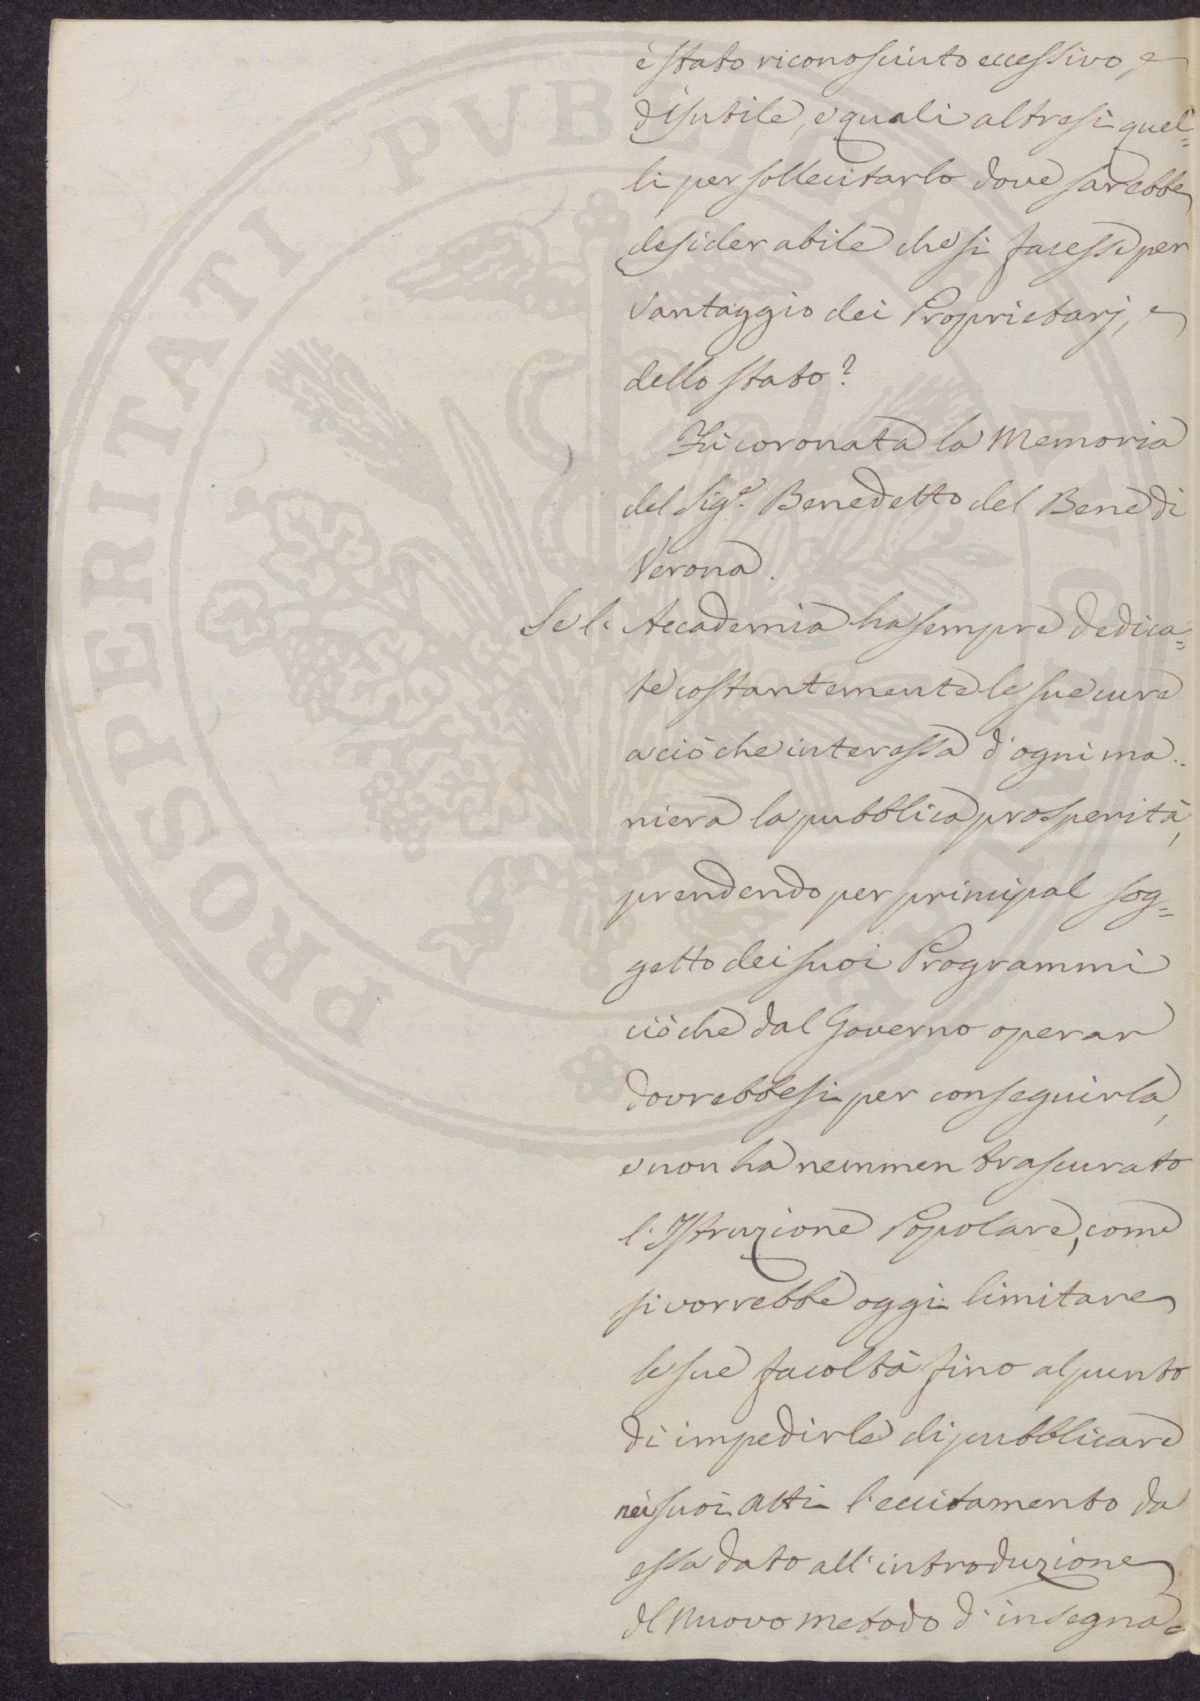 è stato riconosciuto eccessivo, e
disutile, e quali altresì quel=
li per sollecitarlo dove sarebbe
desiderabile che si facesse per
vantaggio dei Proprietarj, e
dello stato?
Fù coronata la Memoria
del Sig.r Benedetto del Bene di
Verona.
Se l'Accademia ha sempre dedica=
te costantemente le sue cure
a ciò che interessa d'ogni ma..
niera la pubblica prosperità,
prendendo per principal sog=
getto dei suoi Programmi
ciò che dal Governo operar
dovrebbesi per conseguirla,
e non ha nemmen trascurato
l'Istruzione Popolare, come
si vorrebbe oggi limitare
le sue facoltà fino al punto
di impedirle di pubblicare
nei suoi Atti l'eccitamento da
essa dato all'introduzione
del nuovo metodo d'insegna=
PROSPERITATI PVBLICAE